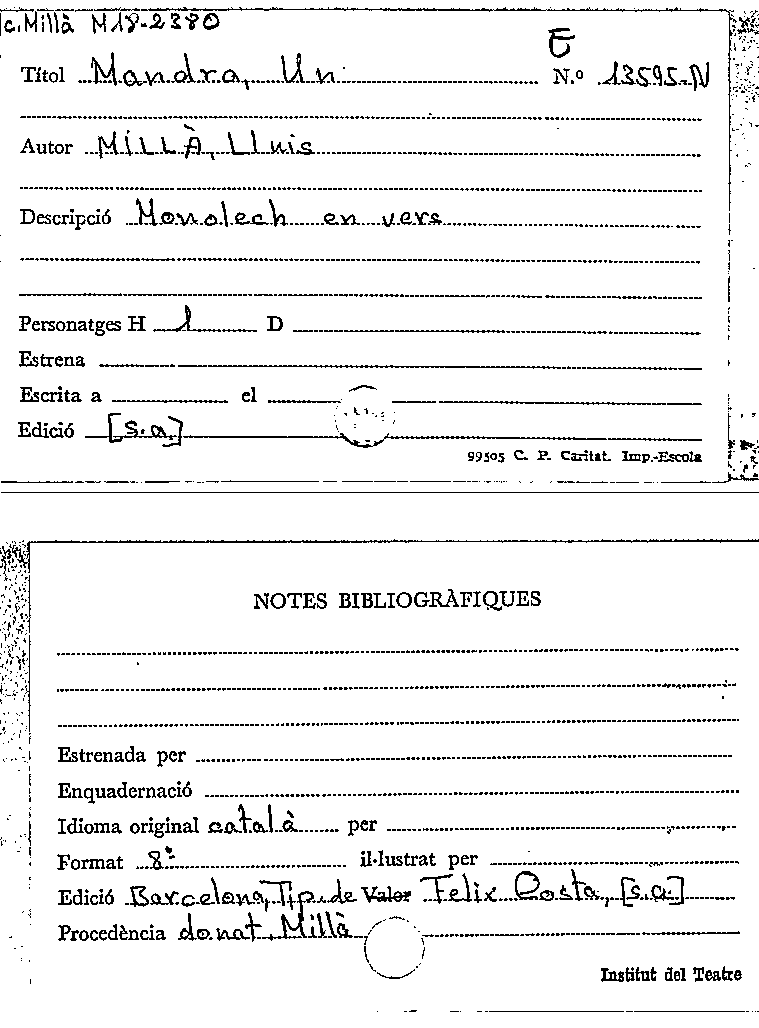 c.Millà M18-2380
E
Títol Mandra, Un N.º 13595-N
Autor MILLÀ, Lluis
Descripció Monolech en vers
Personatges H 1 D
Estrena
Escrita a el
Edició [s.a.]
99505 C. P. Caritat. Imp.-Escola
NOTES BIBLIOGRÀFIQUES
Estrenada per
Enquadernació
Idioma original català per
Format 8º il·lustrat per
Edició Barcelona, Tip. de Valor Felix Costa, [s.a.]
Procedència donat. Millà
Institut del Teatre